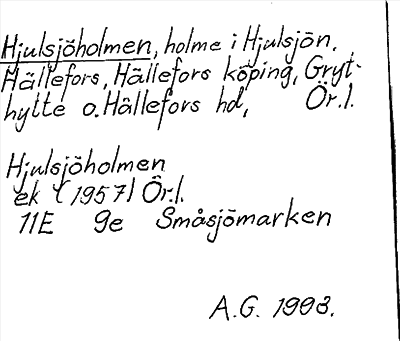 Hjulsjöholmen, holme i Hjulsjön,
Hällefors, Hällefors köping, Gryt-
hytte o. Hällefors hd, Ör.l.
Hjulsjöholmen
ek (1957) Ör.l.
11E 9e Småsjömarken
A.G. 1993.